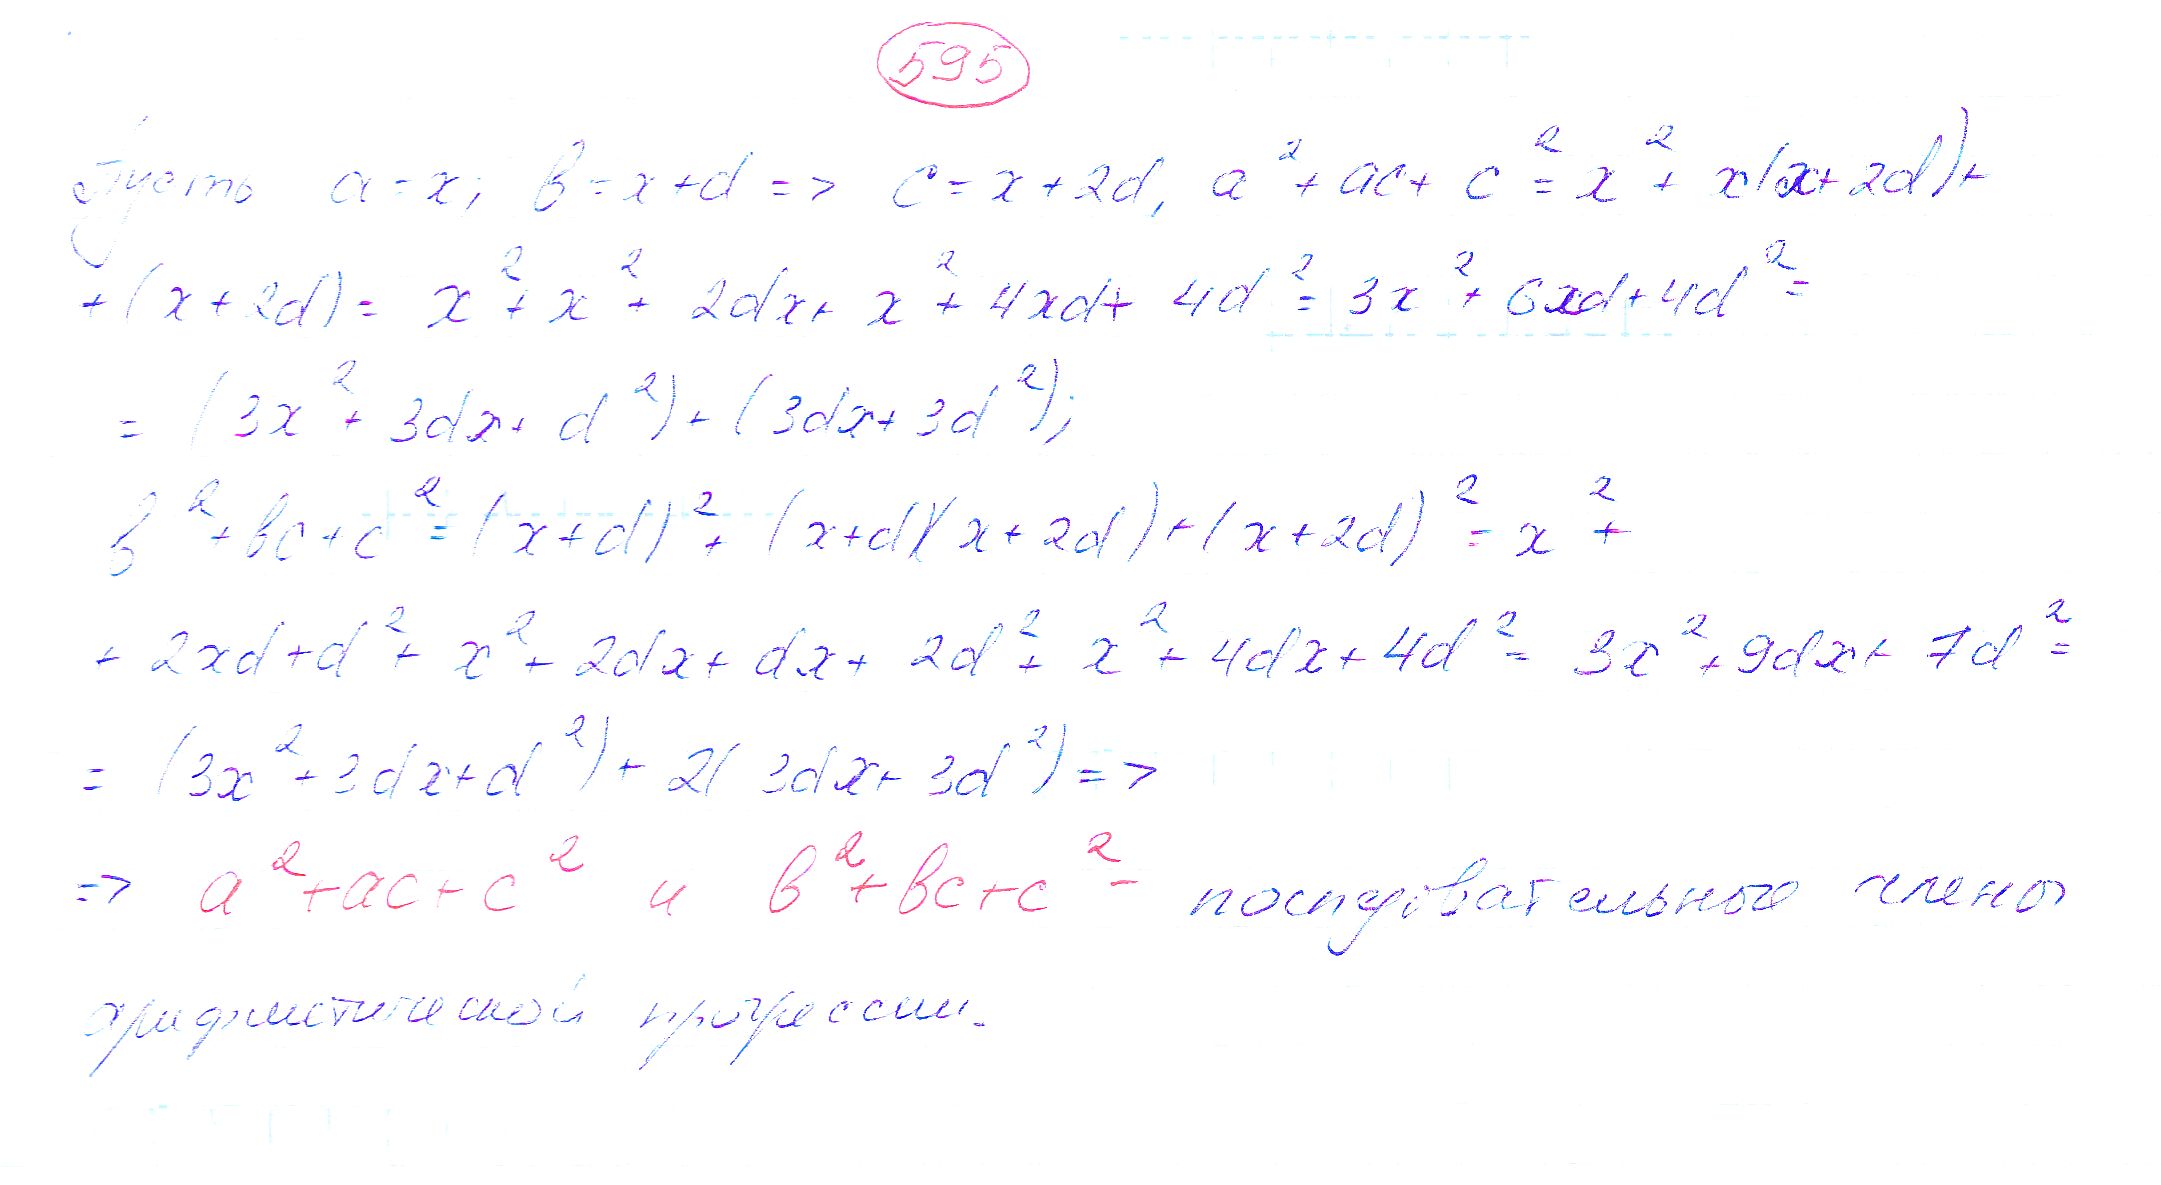 595
Пусть a = x; в = x + d => c = x + 2d, a² + ac + c² = x² + x(x + 2d) +
+ (x + 2d) = x² + x² + 2dx + x² + 4xd + 4d² = 3x² + 6xd + 4d² =
= (3x² + 3dx + d²) + (3dx + 3d²);
в² + вc + c² = (x + d)² + (x + d)(x + 2d) + (x + 2d)² = x² +
+ 2xd + d² + x² + 2dx + dx + 2d² + x² + 4dx + 4d² = 3x² + 9dx + 7d² =
= (3x² + 3dx + d²) + 2(3dx + 3d²) =>
=> a² + ac + c² и в² + вc + c² - последовательные члены
арифметической прогрессии.